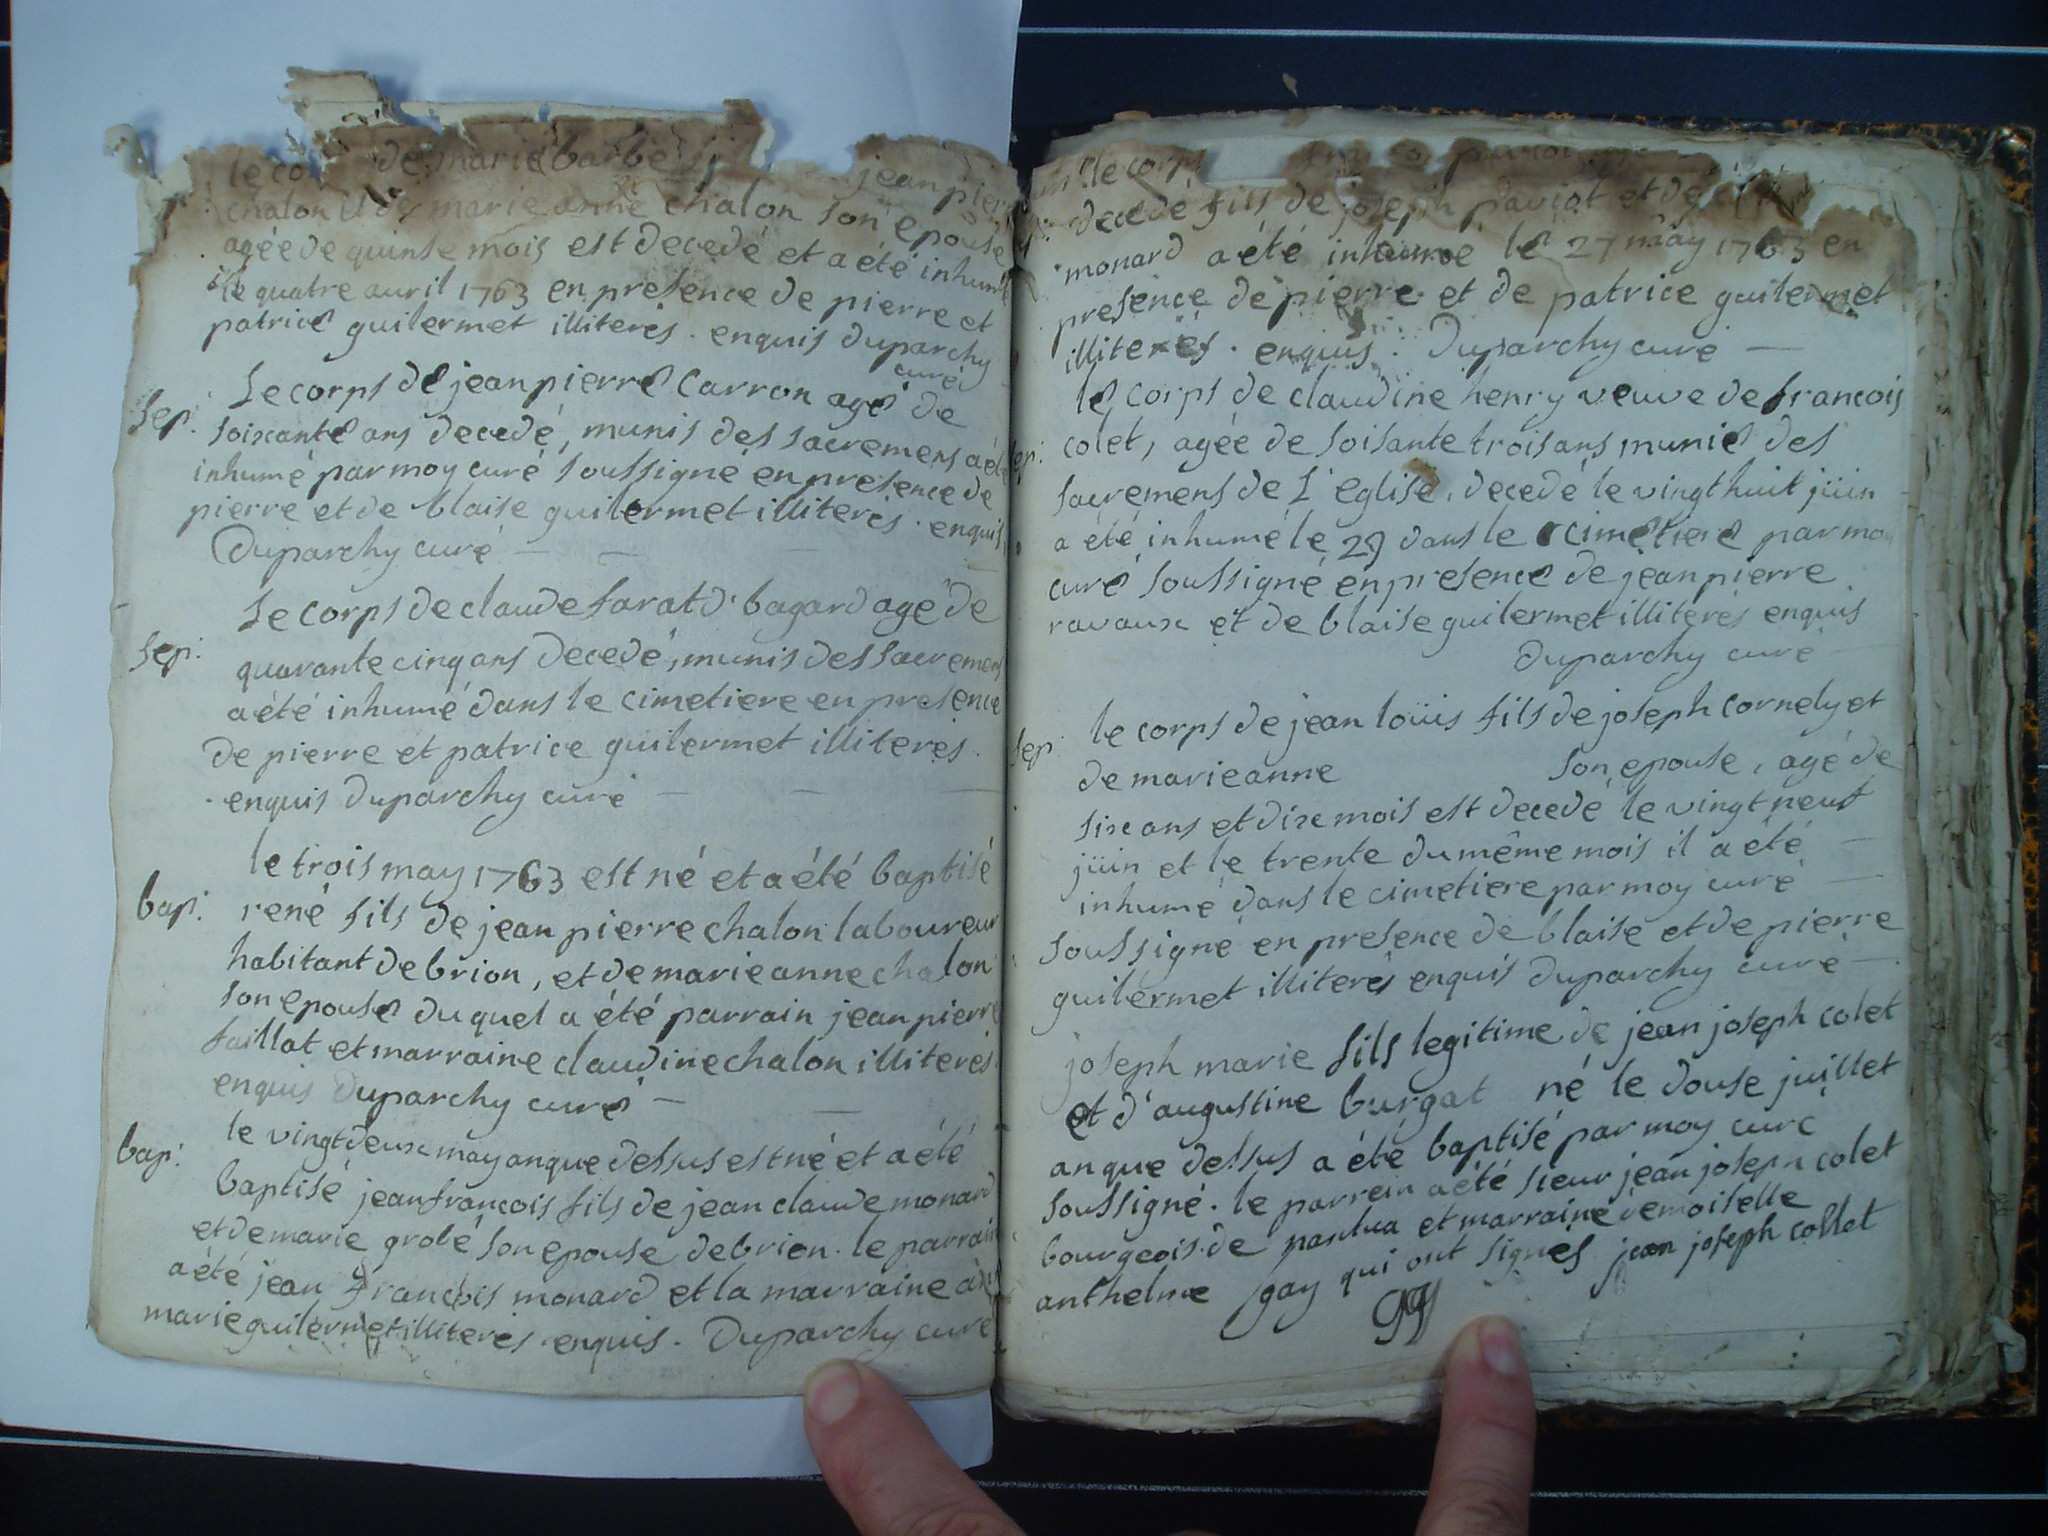 le corps de marie barbe jean pierre
chalon et de marie anne chalon son epouse
agée de quinse mois est decedé et a été inhumé
le quatre auril 1763 en presence de pierre et
patrice guilermet illiterés . enquis Duparchy
curé
sep: Le corps de jean pierre Carron agé de
soixante ans decedé, munis des sacremens a été
inhumé par moy curé soussigné en presence de
pierre et de blaise guilermet illiterés . enquis
Duparchy curé
Le corps de claude sarat d' bagard agé de
sep: quarante cinq ans decedé, munis des sacremens
a été inhumé dans le cimetiere en presence
de pierre et patrice guilermet illiterés .
enquis Duparchy curé
le trois may 1763 est né et a été baptisé
bap: rené fils de jean pierre chalon laboureur
habitant de brion, et de marie anne chalon
son epouse du quel a été parrain jean pierre
faillat et marraine claudine chalon illiterés .
enquis Duparchy curé
bap: le vingt deux may an que dessus est né et a été
baptisé jean francois fils de jean claude monard
et de marie grobé son epouse de brion . le parrain
a été jean francois monard et la marraine a
marie guilermet illiterés . enquis . Duparchy curé
le corps
decedé fils de joseph paviot et de
monard a été inhumé le 27 may 1763 en
presence de pierre et de patrice guilermet
illiterés . enquis . Duparchy curé
le corps de claudine henry veuve de francois
sep: colet, agée de soisante trois ans, munie des
sacremens de L'eglise, decedé le vingt huit juin
a été inhumé le 29 dans le cimetiere par moy
curé soussigné en presence de jean pierre
ravaux et de blaise guilermet illiterés enquis
Duparchy curé
le corps de jean loüis fils de joseph cornely et
sep: de marie anne son epouse, agé de
six ans et dix mois est decedé le vingt neuf
jüin et le trente du même mois il a été
inhumé dans le cimetiere par moy curé
soussigné en presence de blaise et de pierre
guilermet illiterés enquis Duparchy curé
joseph marie fils legitime de jean joseph colet
et d'augustine burgat né le douse juillet
an que dessus a été baptisé par moy curé
soussigné . le parrein a été sieur jean joseph colet
bourgeois de nantua et marraine demoiselle
anthelme gay qui ont signés jean joseph collet